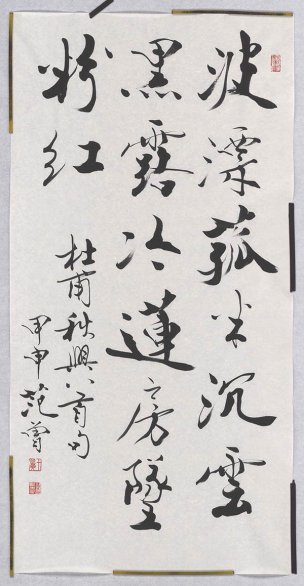 波漂菰米沉雲
黑露冷蓮房墜
粉紅
杜甫秋興八首句
甲申范曾